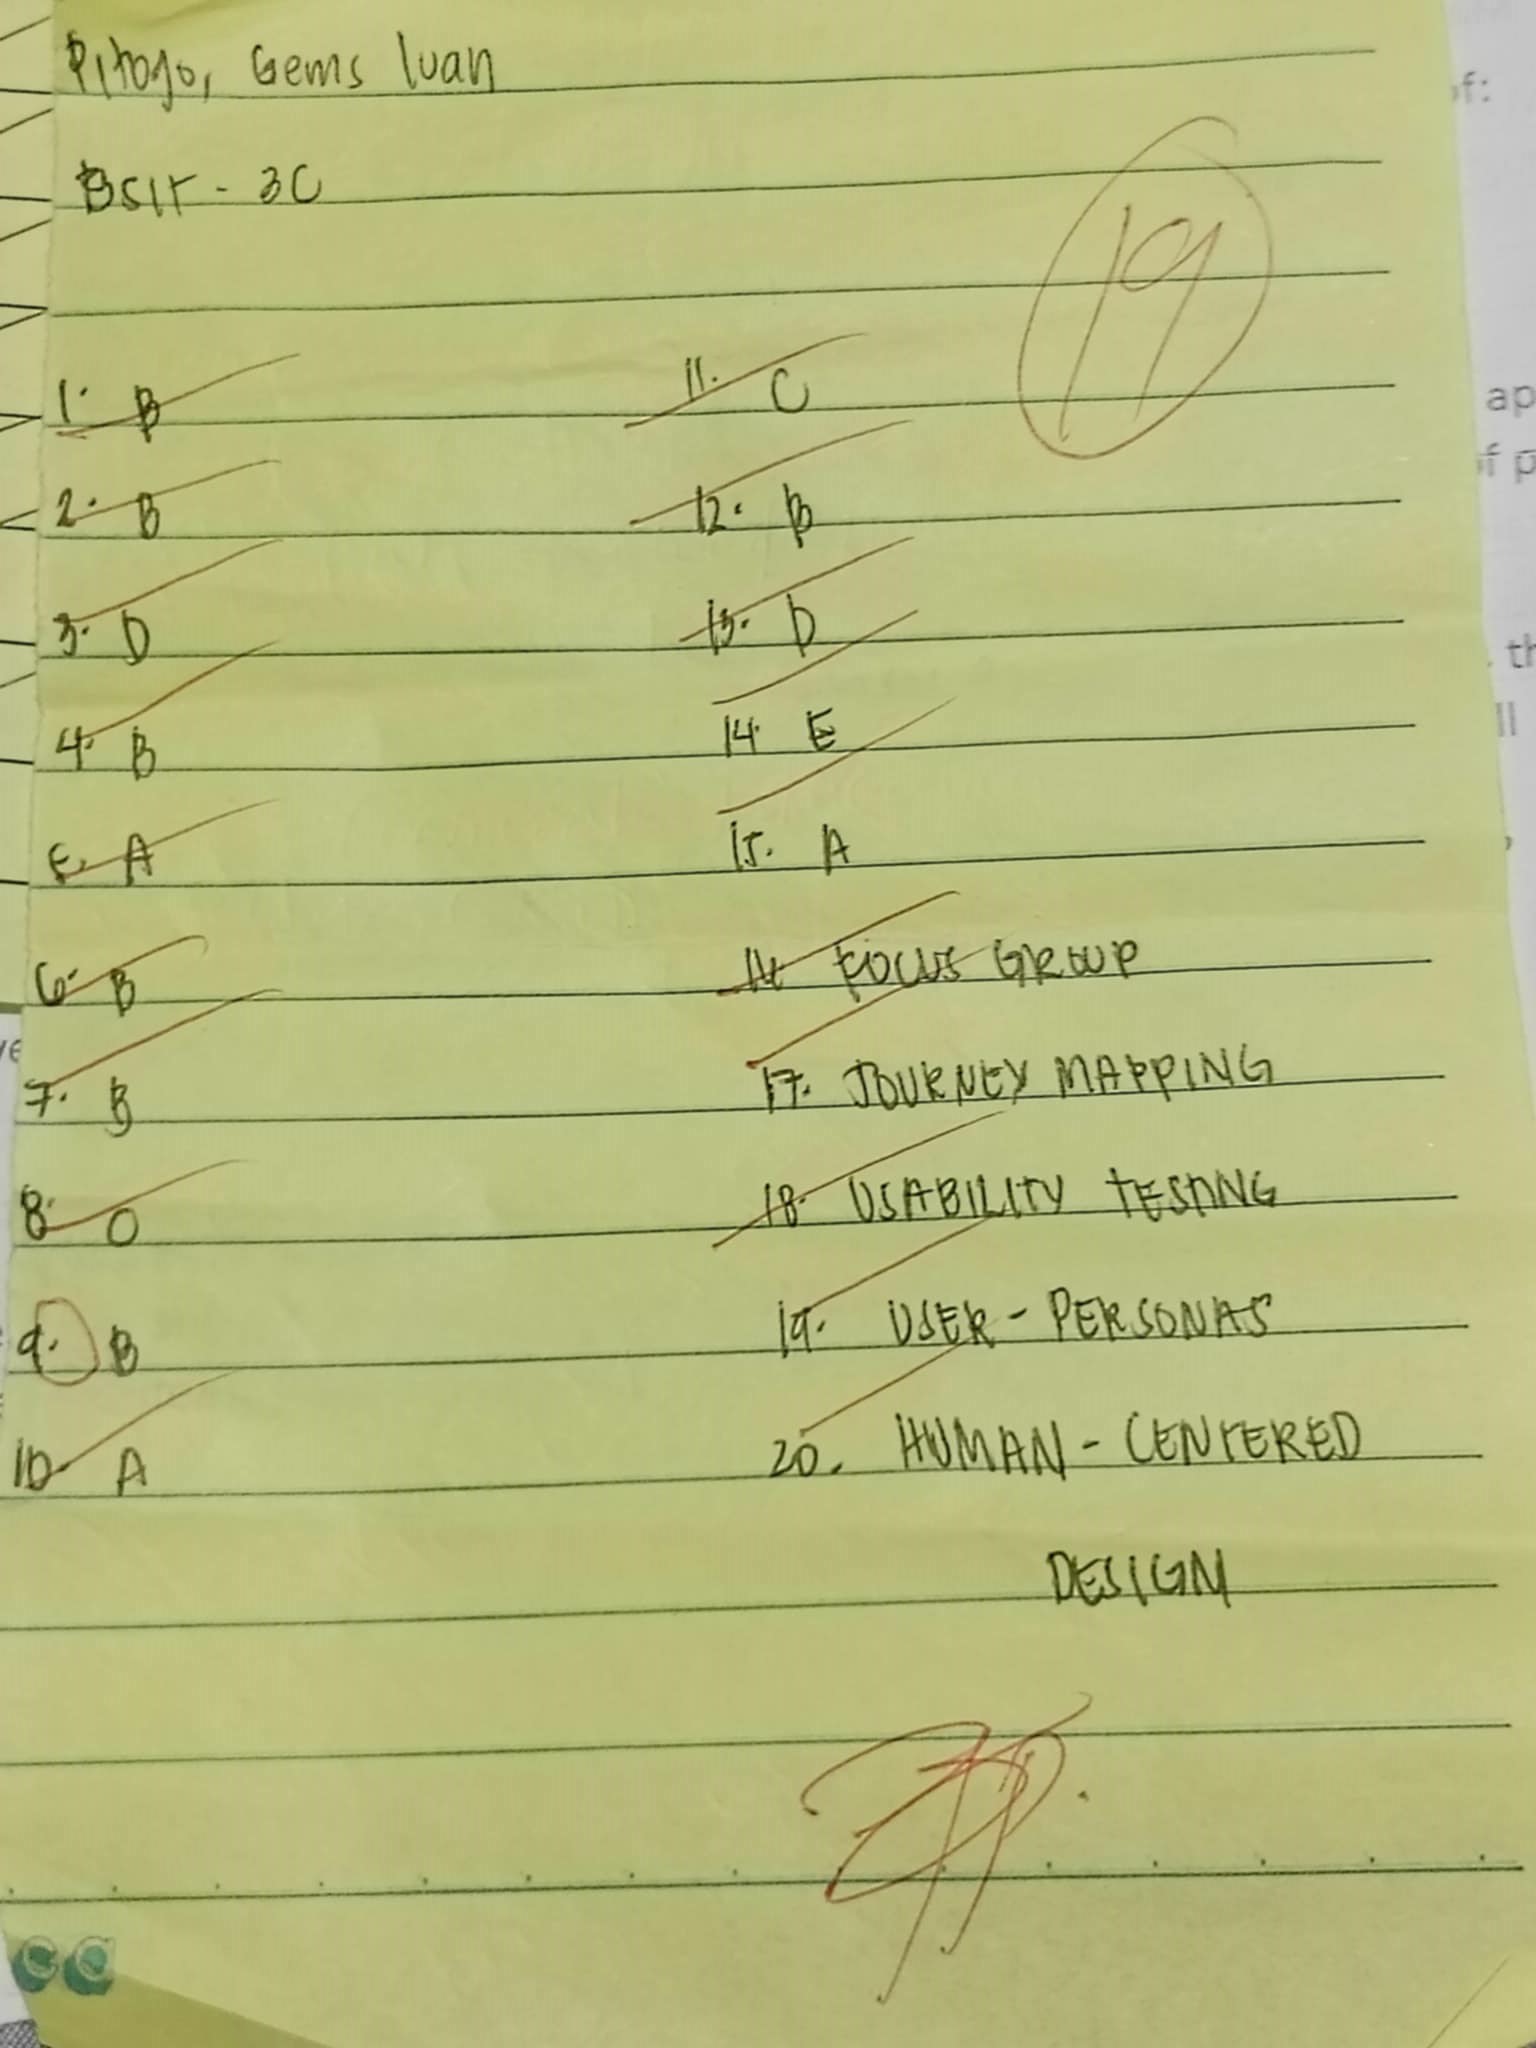 Pitogo, Gems Iuan
BSIT - 3C
19
1. B
2. B
3. D
4. B
5. A
6. B
7. B
8. O
9. B
10. A
11. C
12. B
13. D
14. E
15. A
16. FOCUS GROUP
17. JOURNEY MAPPING
18. USABILITY TESTING
19. USER - PERSONAS
20. HUMAN - CENTERED
DESIGN
of:
ap
of p
th
ll